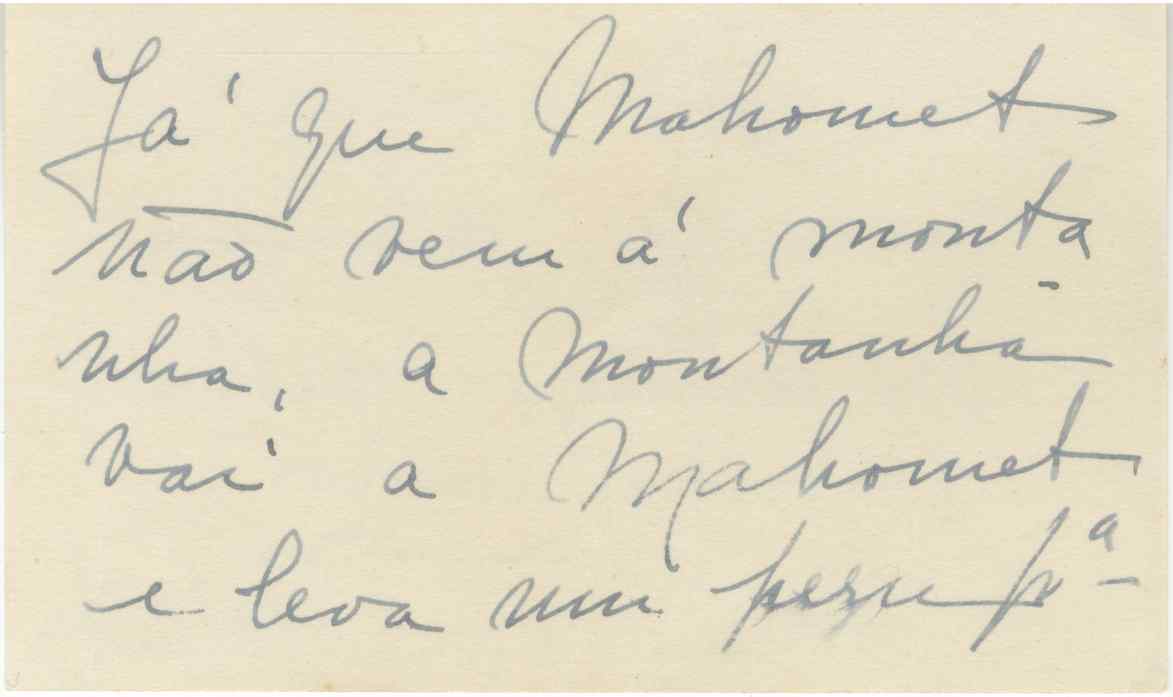 Já que Mahomet
não vem á monta
nha, a montanha
vai a Mahomet
e leva um peru pª